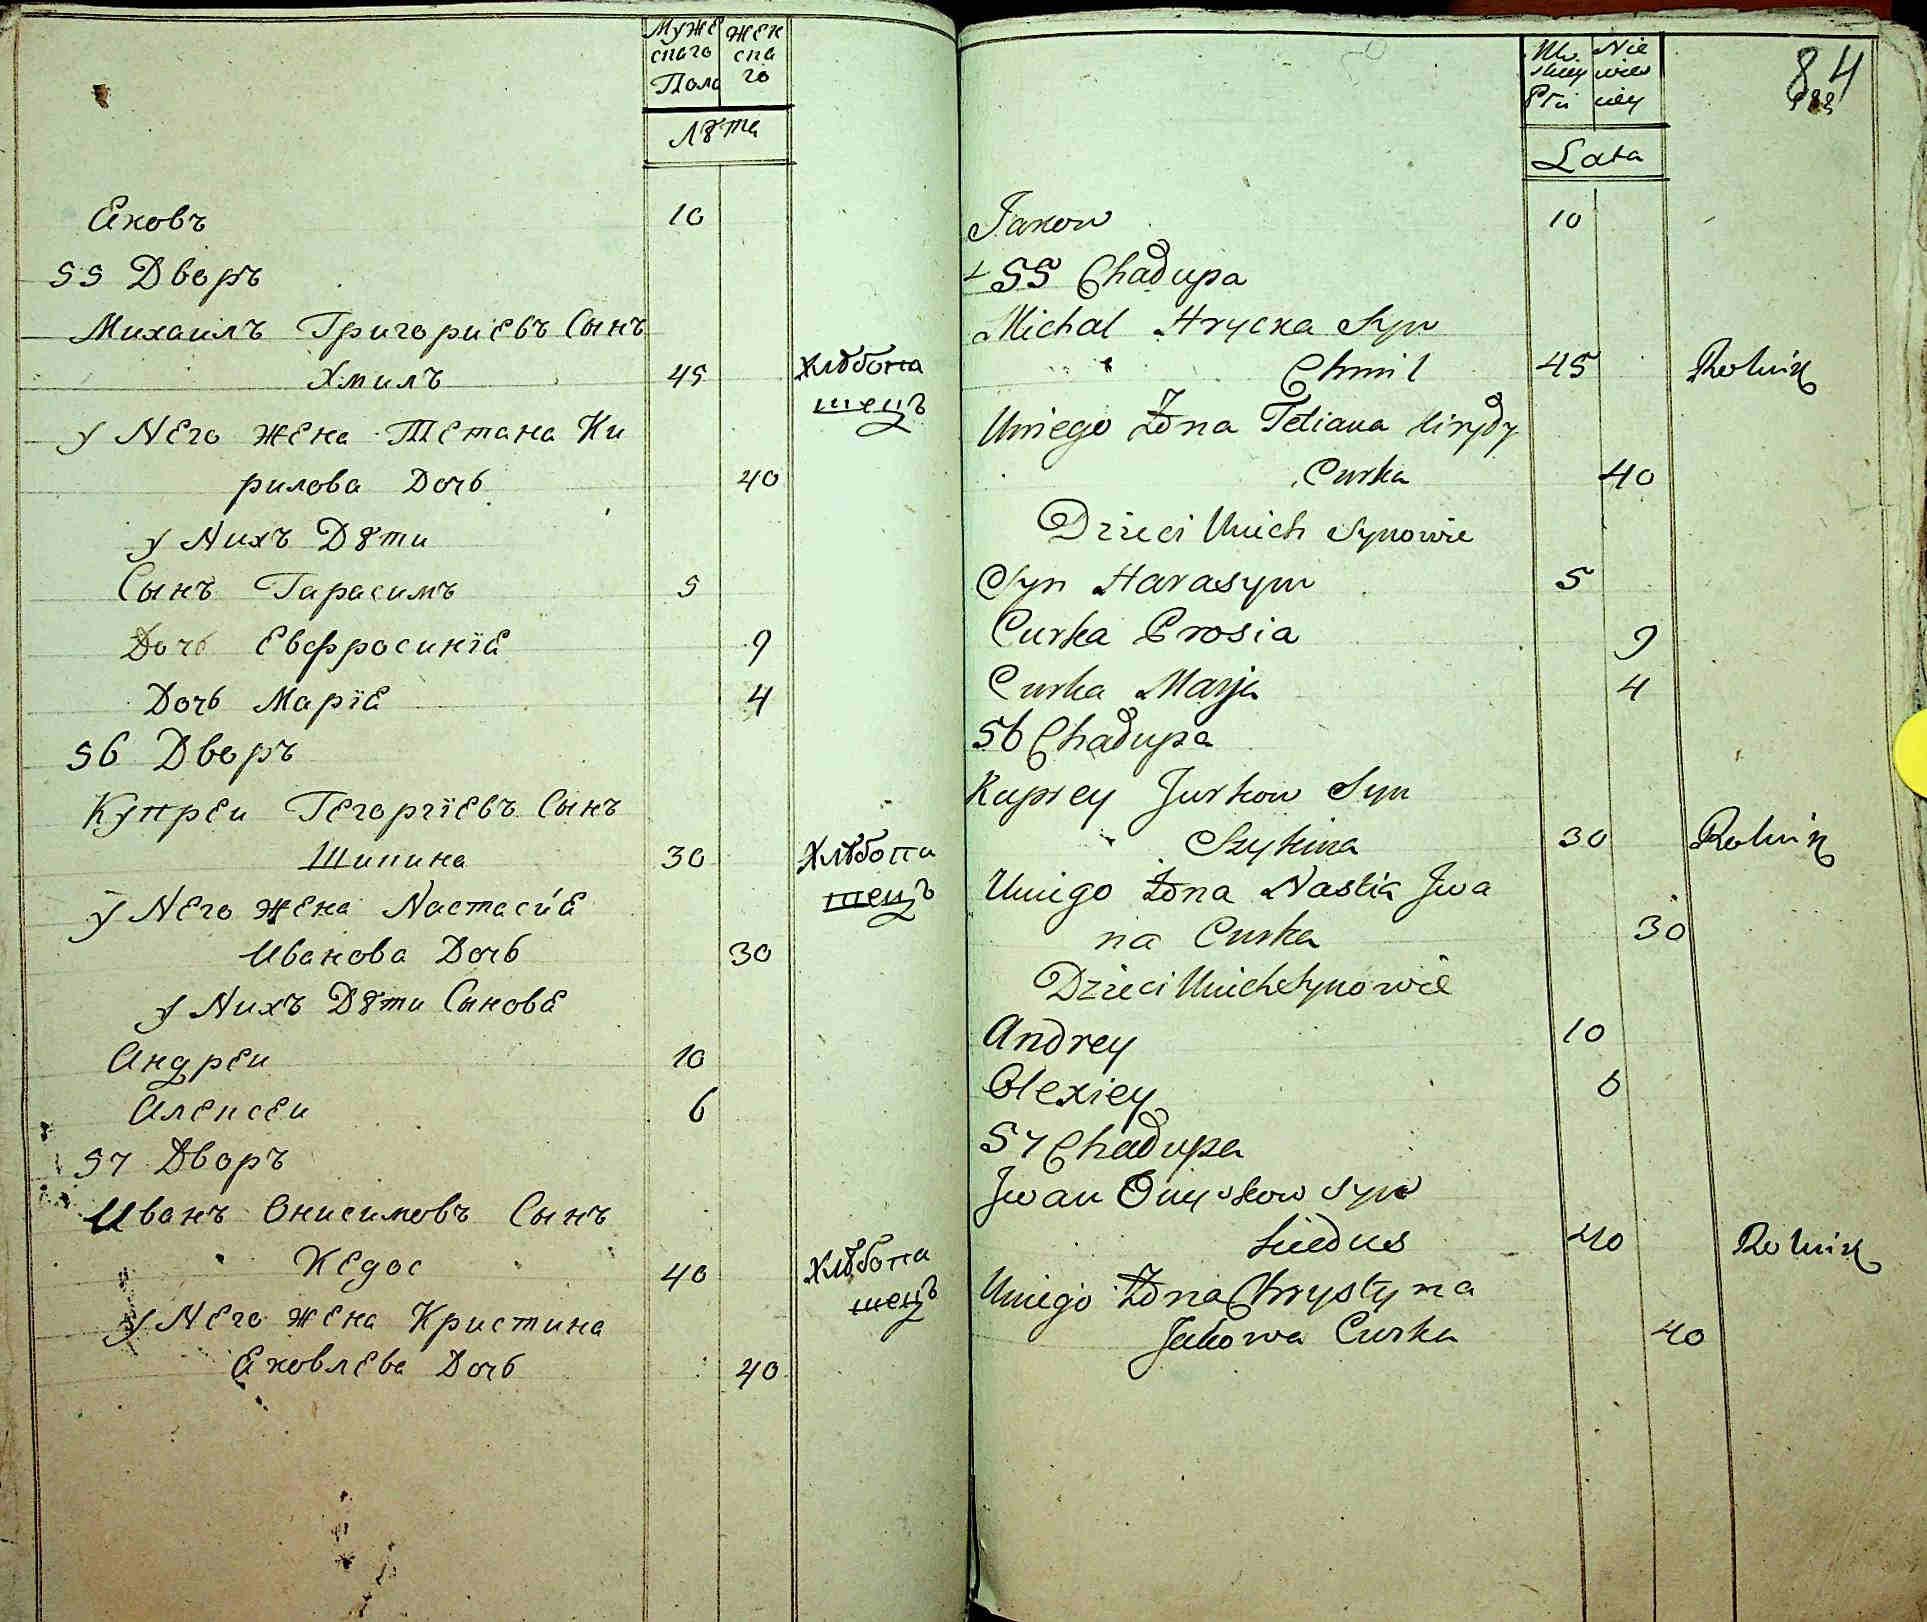 Муже жен
скаго ска
Пола го
Лѣта
Яковъ 10
55 Дворъ
Михаилъ Григориевъ Сынъ
Хмилъ 45 Хлѣбопа
шецъ
у Него жена Тетяна Ки
рилова Дочь 40
у Нихъ Дѣти
Сынъ Гарасимъ 5
Дочь Евфросинїя 9
Дочь Марїя 4
56 Дворъ
Купреи Гегоргїевъ Сынъ
Шикина 30 Хлѣбопа
шецъ
у Него жена Настасия
Иванова Дочь 30
у Нихъ Дѣти Сыновя
Андреи 10
Алексеи 6
57 Дворъ
Иванъ Онисимовъ Сынъ
Кедос 40 Хлѣбопа
шецъ
у Него жена Кристина
Яковлева Дочь 40
84
Lata
Jakow 10
55 Chałupa
Michal Hrycka Syn
Chmil 45 Rolnik
Uniego Żona Tetiana Kiryły
Curka 40
Dzieci Unich Synowie
Syn Harasym 5
Curka Prosia 9
Curka Marja 4
56 Chałupa
Kuprey Jurkow Syn
Szykina 30 Rolnik
Unigo Żona Nastia Jwa
na Curka 30
Dzieci Unich Synowie
Andrey 10
Olexiey 6
57 Chałupa
Jwan Onyskow Syn
Kiedus 40 Rolnik
Unigo Żona Chrystyna
Jakowa Curka 40